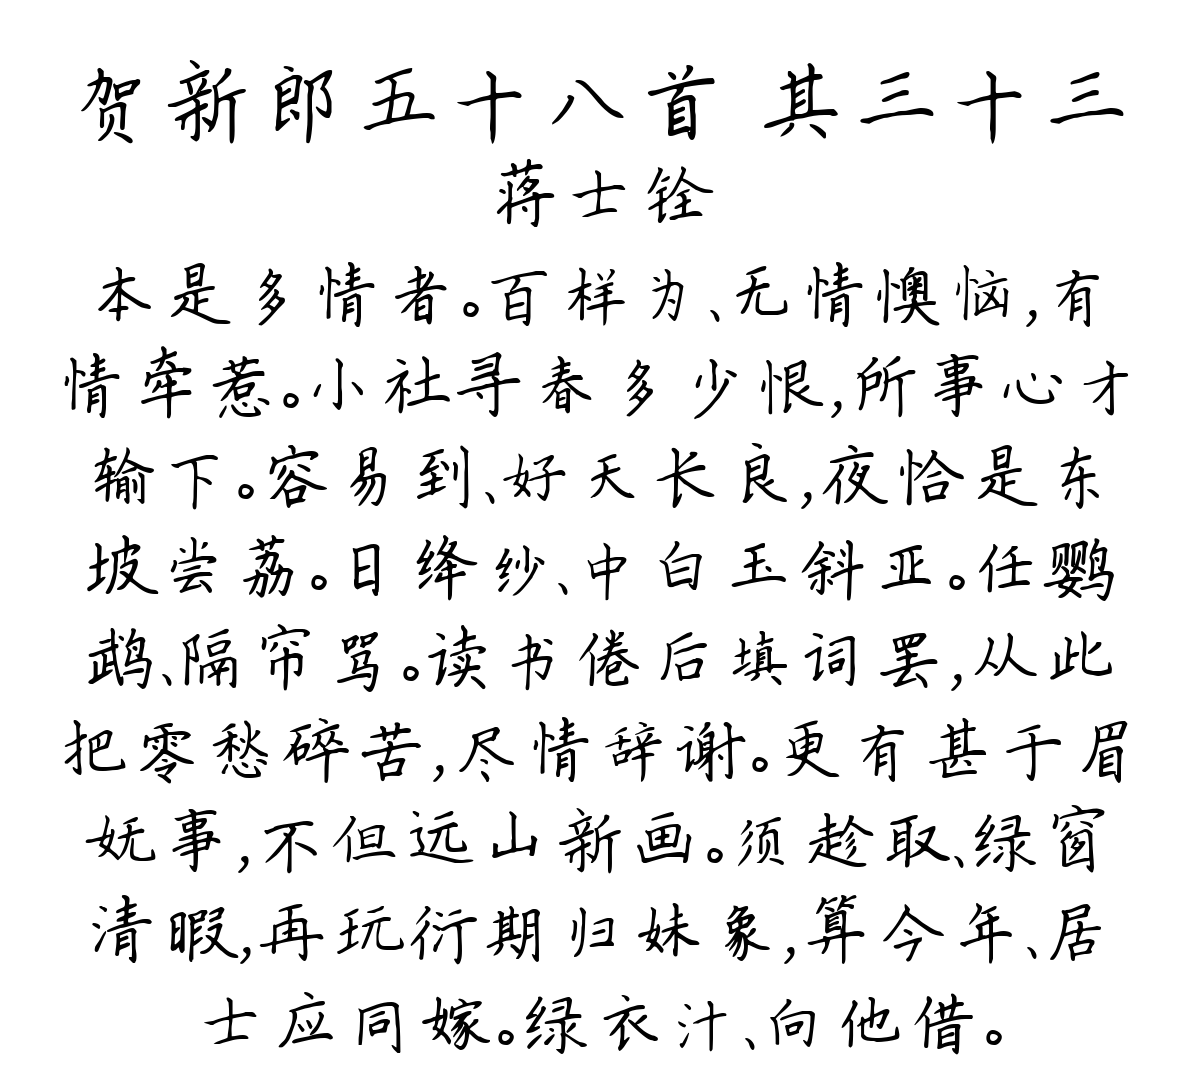 贺新郎五十八首 其三十三
蒋士铨
本是多情者。百样为、无情懊恼,有
情牵惹。小社寻春多少恨,所事心才
输下。容易到、好天长良,夜恰是东
坡尝荔。日绛纱、中白玉斜亚。任鹦
鹉、隔帘骂。读书倦后填词罢,从此
把零愁碎苦,尽情辞谢。更有甚于眉
妩事,不但远山新画。须趁取、绿窗
清暇,再玩衍期归妹象,算今年、居
士应同嫁。绿衣汁、向他借。